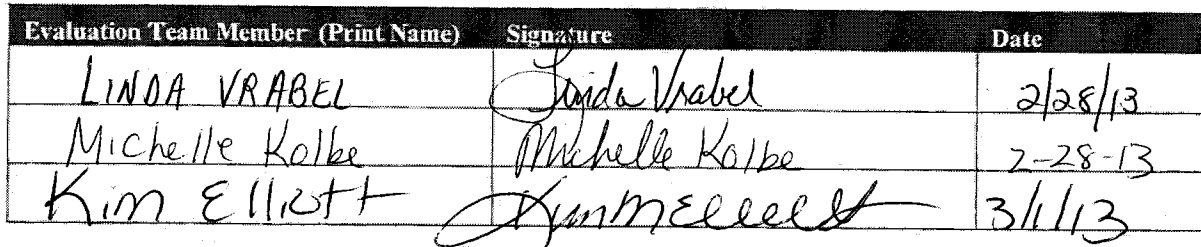 Evaluation Team Member (Print Name) Signature Date
LINDA VRABEL Linda Vrabel 2/28/13
Michelle Kolbe Michelle Kolbe 2-28-13
Kim Elliott Kim M Elliott 3/1/13